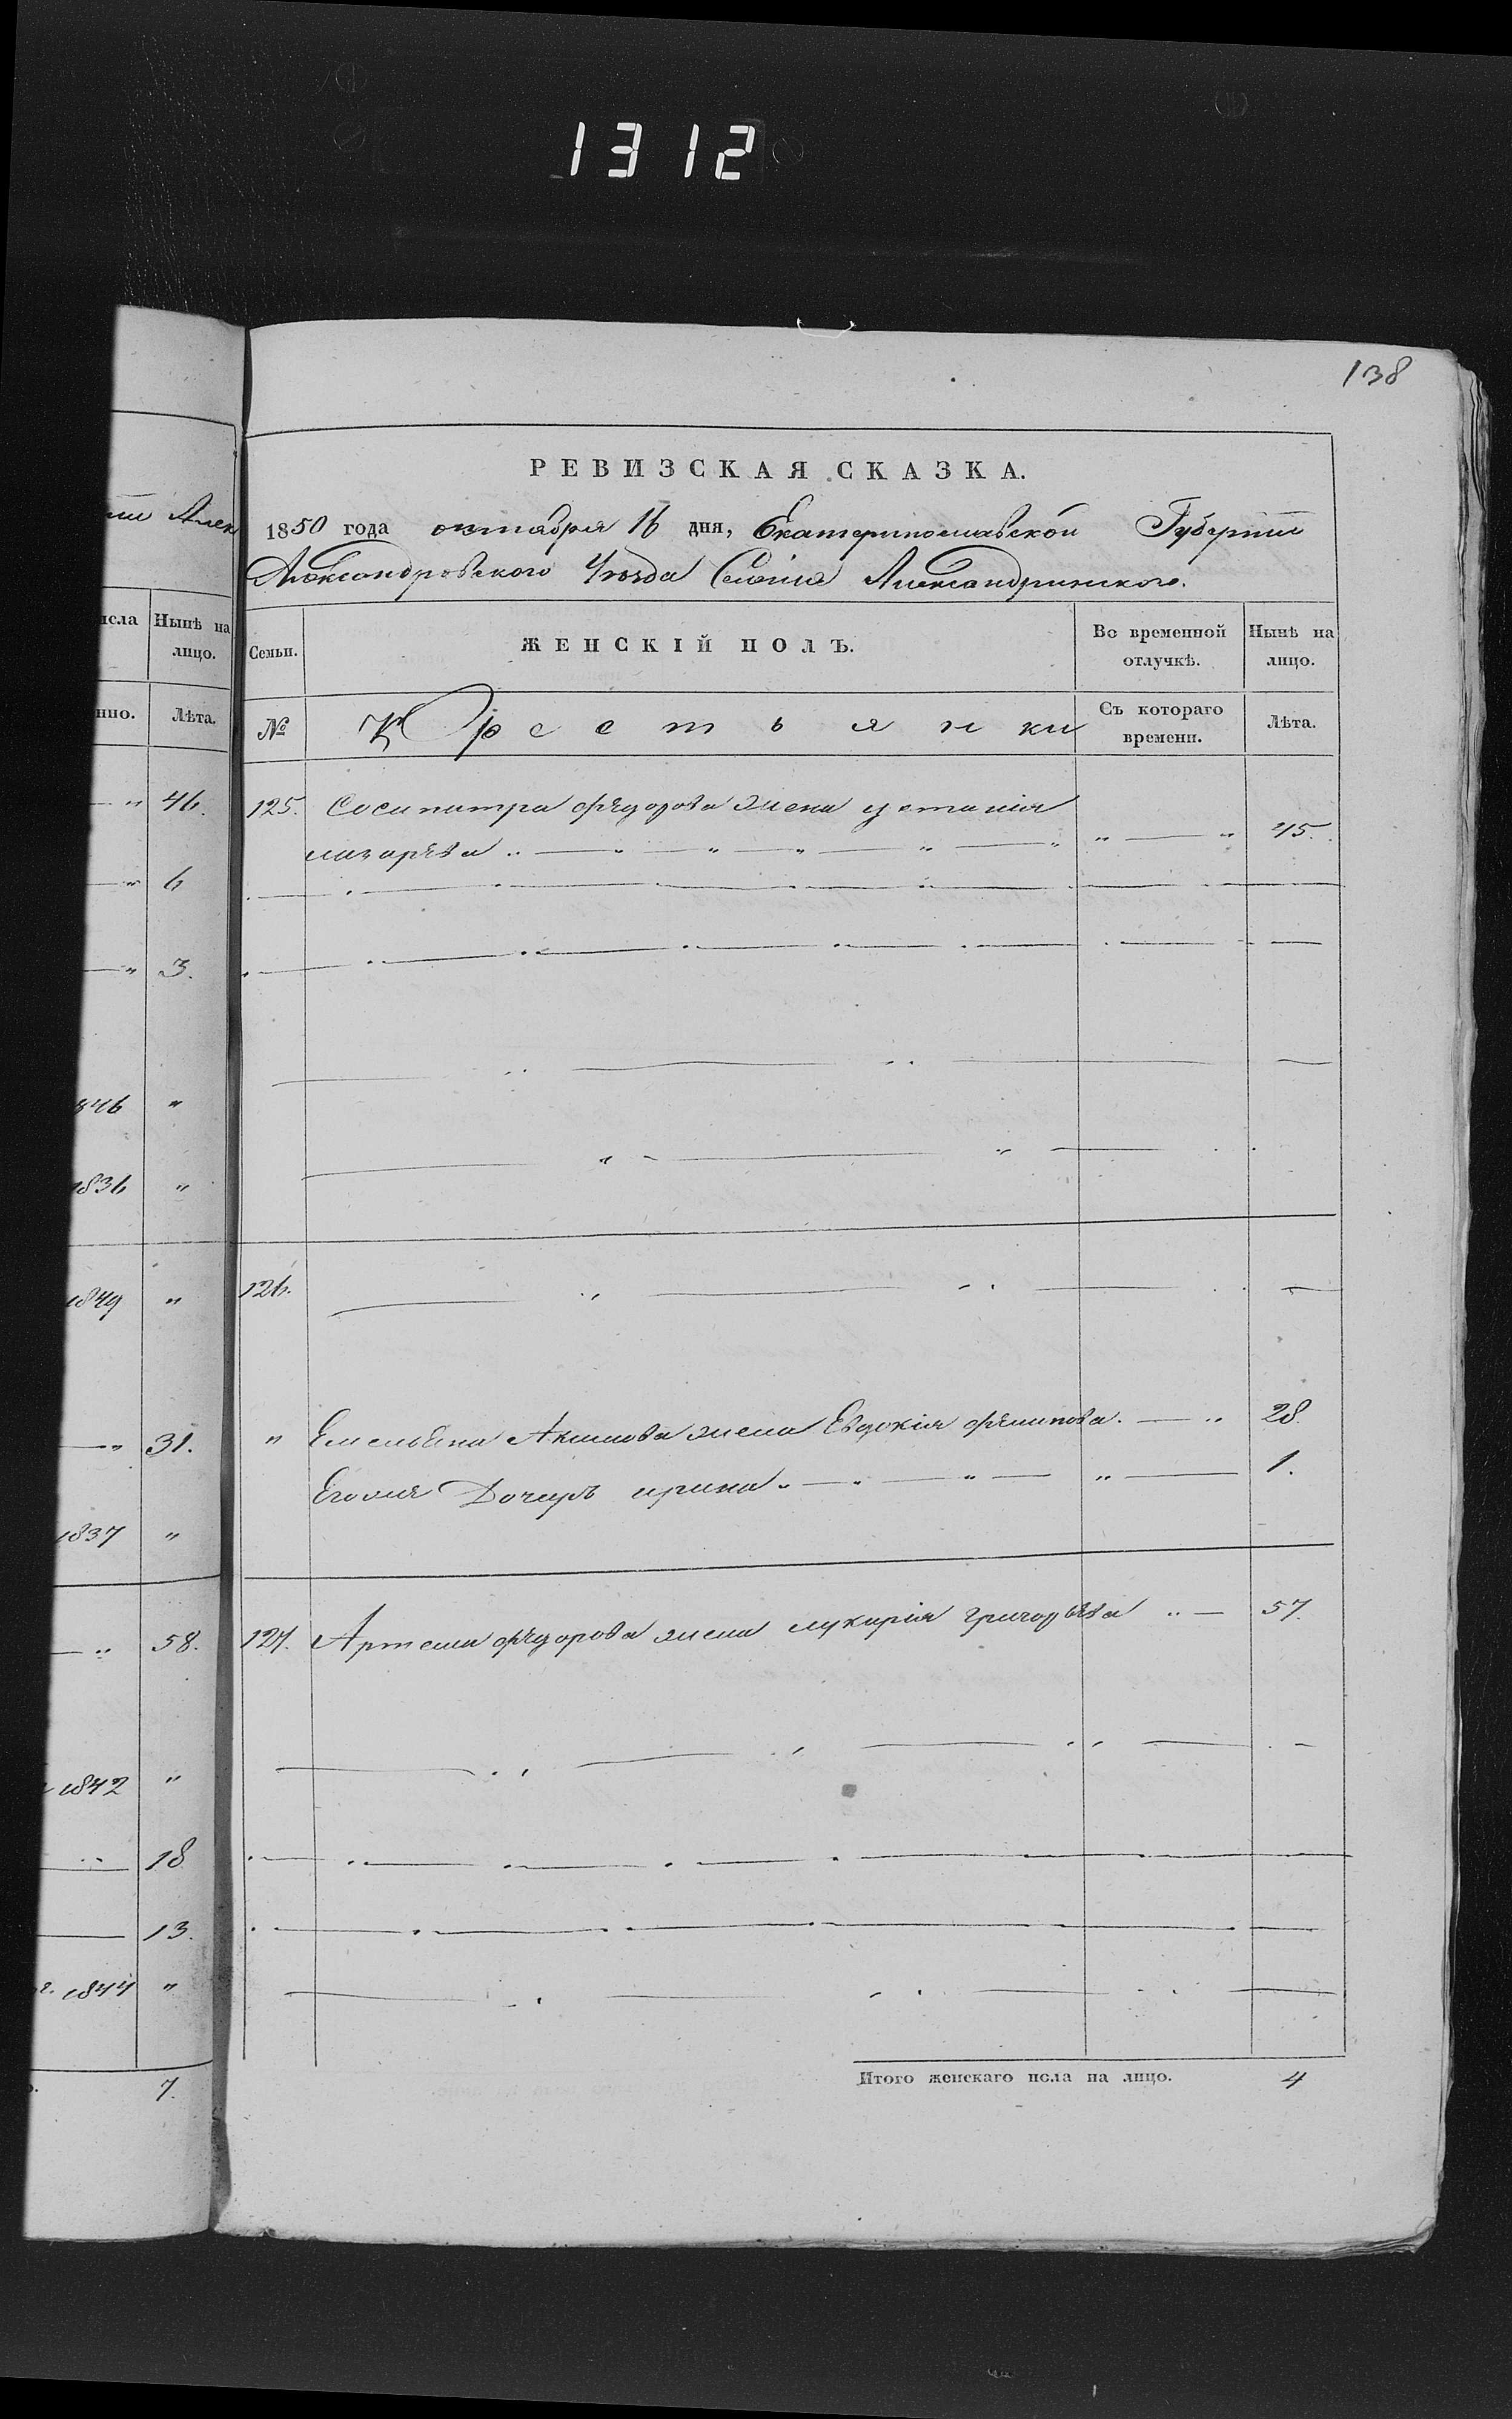 1312
138
РЕВИЗСКАЯ СКАЗКА.
1850 года октября 16 дня, Екатеринославской Губерніи
Александровского Уѣзда Селенія Александринского.
Семьи. ЖЕНСКІЙ ПОЛЪ. Во временной отлучкѣ. Нынѣ на лицо.
№ Крестьянки Съ котораго времени. Лѣта.
125. Сосипатра Федорова жена устинія
лазарева „ — „ — „ — „ — „ — „ „ — „ 45.
126.
„ Емельяна Акимова жена Евдокія филипова. — „ 28
Егоже Дочерь ирина „ — „ — „ — „ — 1.
127. Артема федорова жена лукерія григорьева „ — 57.
Итого женскаго пола на лицо. 4
ніи Алек
исла Нынѣ на лицо.
нно. Лѣта.
— „ 46.
— „ 6
— „ 3.
846 „
1836 „
1849 „
— „ 31.
1837 „
— „ 58.
1842 „
18
13.
г. 1844 „
7.